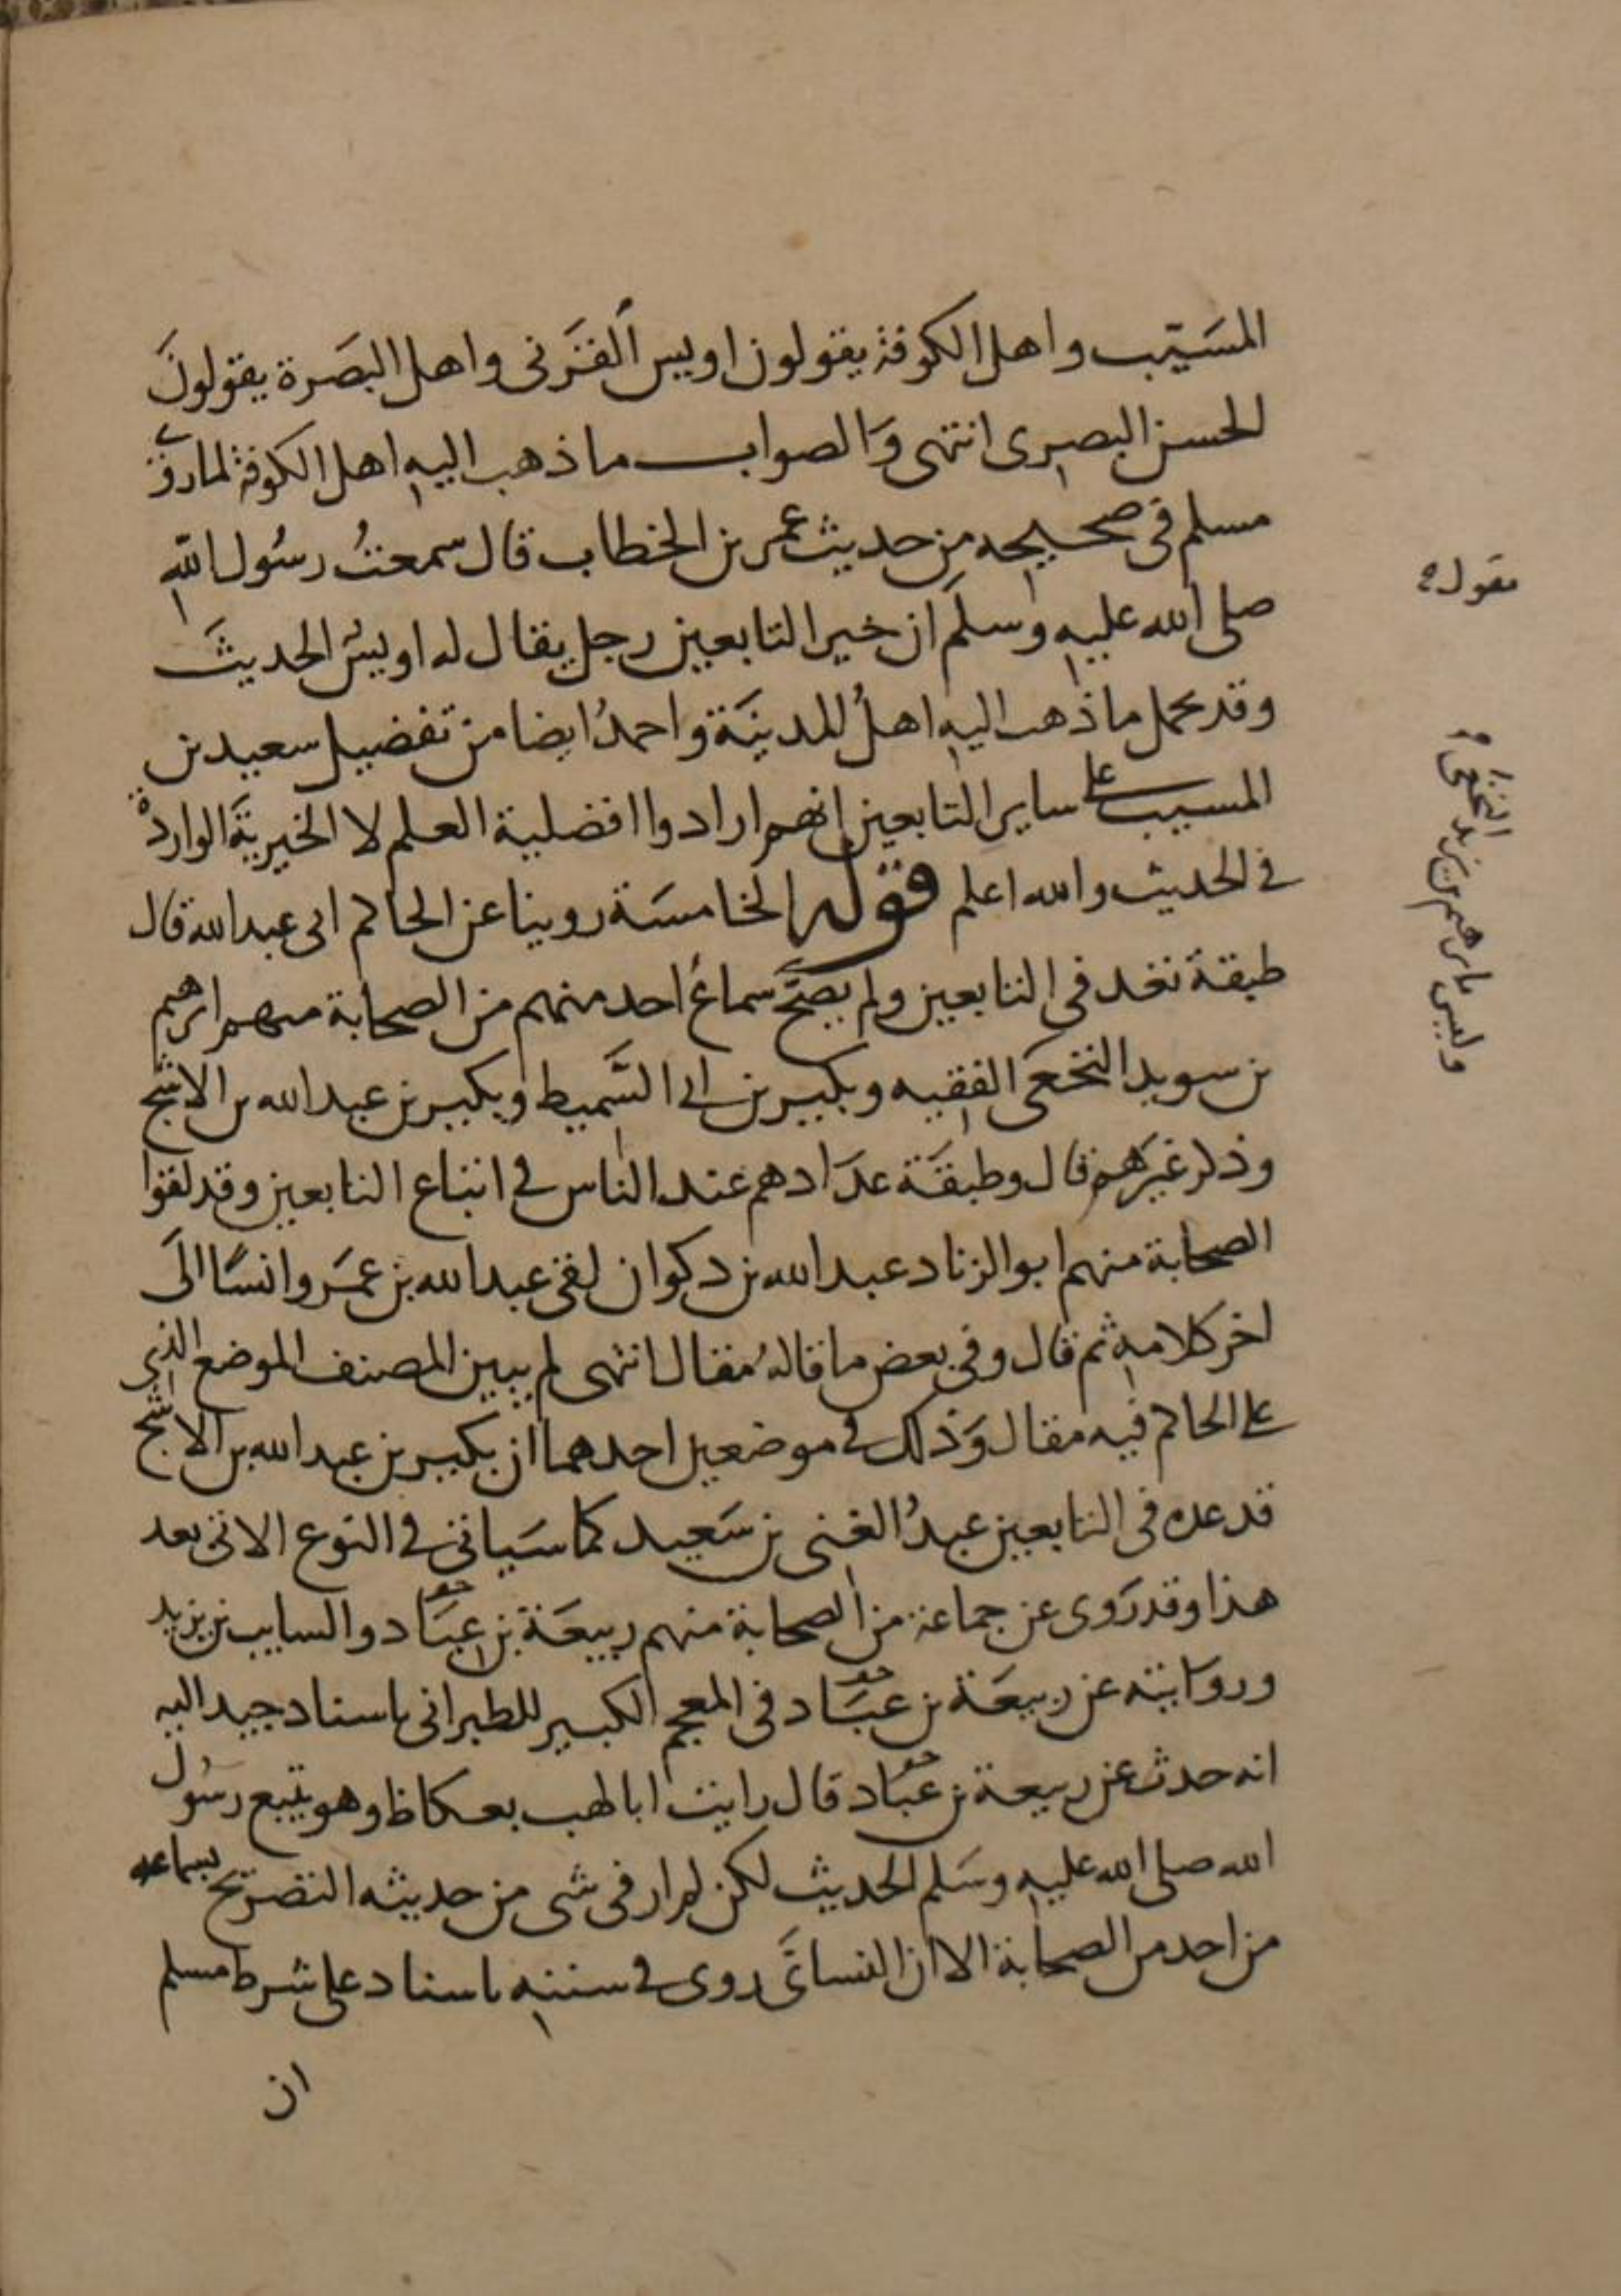 المسَيّب واهل الكوفة يقولون اويس القَرَنى واهل البصَرة يقولونَ
الحسن البصرى انتهى وَالصواب ما ذهب اليه اهل الكوفة لما روى
مسلم فى صحيحه من حديث عمر بن الخطاب قال سمعتُ رسُول الله
صلى الله عليه وسلم ان خير التابعين رجل يقال له اويسُ الحديثَ
وقد يحمل ما ذهب اليه اهلُ المدينَة واحمدُ ايضا من تفضيل سعيد بن
المسيب على ساير التابعين انهم ارادوا افضلية العلم لا الخيريةَ الواردة
في الحديث والله اعلم قوله الخامسَة روينا عن الحاكم ابى عبد الله قال
طبقة تعد فى التابعين ولم يصَحّ سماعُ احد منهم من الصحابة منهم ابرهيم
بن سويد النخعى الفقيه وبكير بن ابى السَّميط وبكير بن عبد الله بن الاشج
وذكر غيرَهم قال وطبقَة عدَادهم عند الناس في اتباع التابعين وقد لقوا
الصحابة منهم ابو الزناد عبد الله بن دكوان لقى عبد الله بن عمَر وانسًا الَى
اخر كلامه ثم قال وفى بعض ما قالهُ مقال انتهى لم يبين المصنف الموضع الذى
على الحاكم فيه مقال وَذلك في موضعين احدهما ان بكير بن عبد الله بن الاشج
قد عده فى التابعين عبدُ الغنى بن سَعيد كما سَياتى في النوع الاتى بعد
هذا وقد رَوى عن جماعة من الصحابة منهم ربيعَة بن عبَاد والسايب بن يزيد
وروَايته عن ربيعَة بن عبَاد فى المعجم الكبير للطبرانى باسناد جيد اليه
انه حدث عن ربيعة بن عبَاد قال رايت ابا لهب بعكاظ وهو يتبع رسُول
الله صلى الله عليه وسَلم الحديث لكن لم ار فى شى من حديثه التصريح بسماعه
من احد من الصحابة الا ان النسائَى روى في سننه باسناد على شرط مسلم
ان
يقول
وليس بابرهيم بن يزيد النخعى